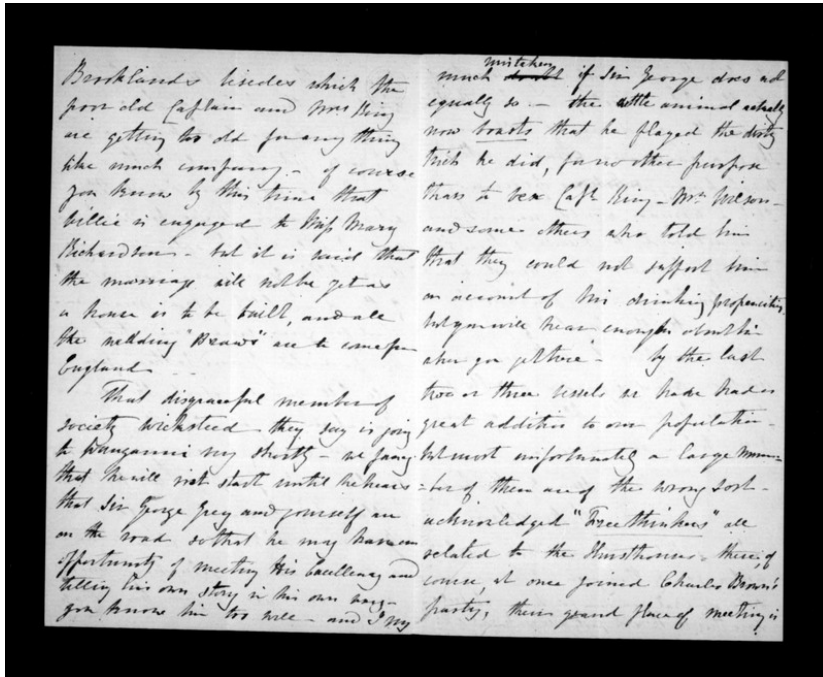 Brooklands besides which the
poor old Captain and Mrs King
are getting too old for any thing
like much company - of course
you know by this time that
Willie is engaged to Miss Mary
Richardson - but it is said that
the marriage will not be yet as
a house is to be built, and all
the wedding "Braws" are to come from
England
That disgraceful member of
society Wicksteed they say is going
to Wanganui very shortly - we fancy
that he will not start until he hears
that Sir George Grey and yourself are
on the road so that he may have an
opportunity of meeting His Excellency and
telling his own story in his own way -
you know him too well - and I my
much mistaken if Sir George does not
equally so - the little animal actually
now boasts that he played the dirty
trick he did, for no other purpose
than to vex Captn King - Mr Wilson -
and some others who told him
that they could not support him
on account of his drinking propensities,
but you will hear enough about him
when you get here - by the last
two or three vessels we have had a
great addition to our population -
but most unfortunately a large num
=ber of them are of the wrong sort -
acknowledged "Freethinkers" all
related to the Hursthouses - these, of
course, at once joined Charles Brown's
party, their grand place of meeting is